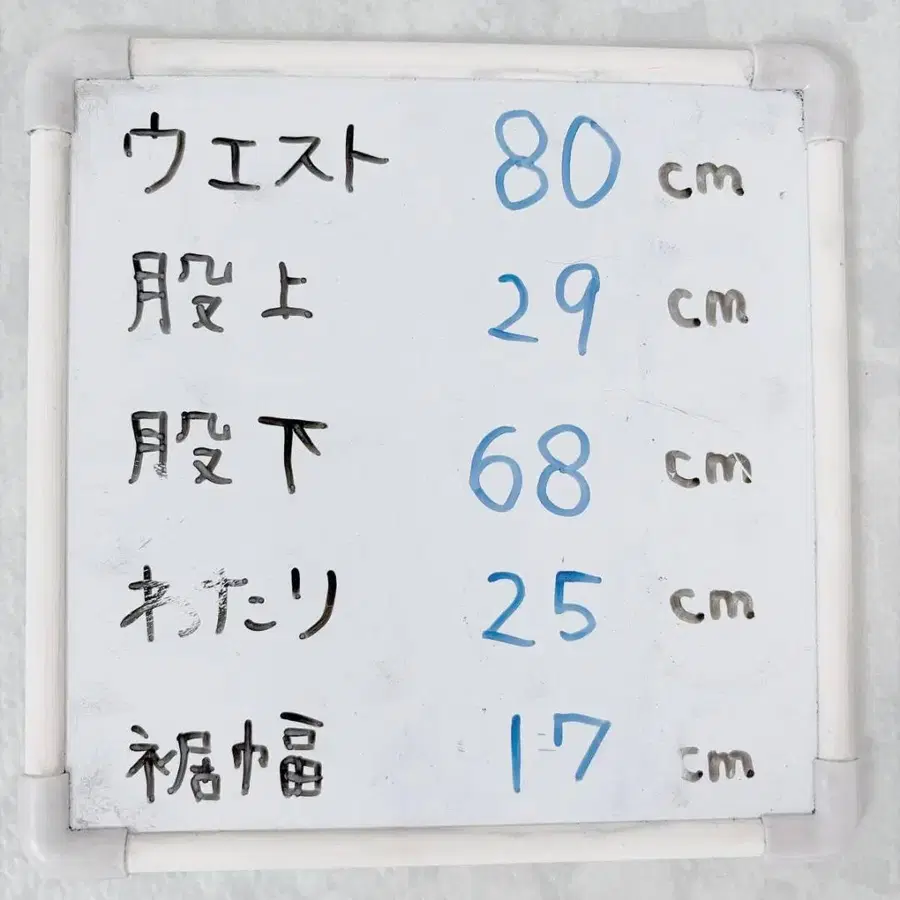 ウエスト 80 cm
股上 29 cm
股下 68 cm
わたり 25 cm
裾幅 17 cm